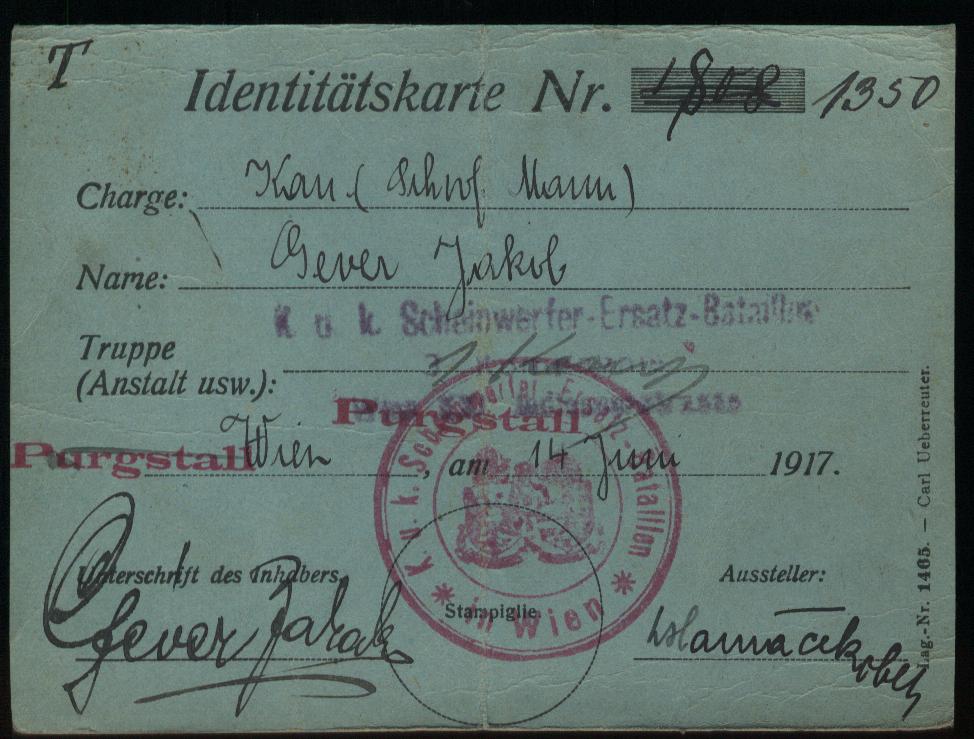 T
Identitätskarte Nr. 1808 1350
Charge: Kan (Schwf. Mann)
Name: Gever Jakob
K. u. k. Scheinwerfer-Ersatz-Bataillon
Truppe
(Anstalt usw.):
Purgstall
Purgstall Wien, am 14 Juni 1917.
K. u. k. Scheinwerfer-Ersatz-Bataillon * in Wien *
Unterschrift des Inhabers.
Aussteller:
Stampiglie.
Gever Jakob
Lag.-Nr. 1465. — Carl Ueberreuter.